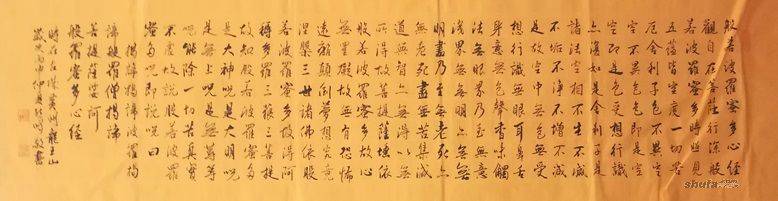 般若波羅蜜多心經
觀自在菩薩行深般
若波羅蜜多時照見
五蘊皆空度一切苦
厄舍利子色不異空
空不異色色即是空
空即是色受想行識
亦復如是舍利子是
諸法空相不生不滅
不垢不淨不增不減
是故空中無色無受
想行識無眼耳鼻舌
身意無色聲香味觸
法無眼界乃至無意
識界無無明亦無無
明盡乃至無老死亦
無老死盡無苦集滅
道無智亦無得以無
所得故菩提薩埵依
般若波羅蜜多故心
無罣礙故無有恐怖
遠離顛倒夢想究竟
涅槃三世諸佛依般
若波羅蜜多故得阿
耨多羅三藐三菩提
故知般若波羅蜜多
是大神呪是大明呪
是無上呪是無等等
呪能除一切苦真實
不虛故說般若波羅
蜜多呪即說呪曰
揭諦揭諦波羅揭
諦波羅僧揭諦
菩提薩婆訶
般羅蜜多心經
時在龍王山
歲次丙申仲夏敬書